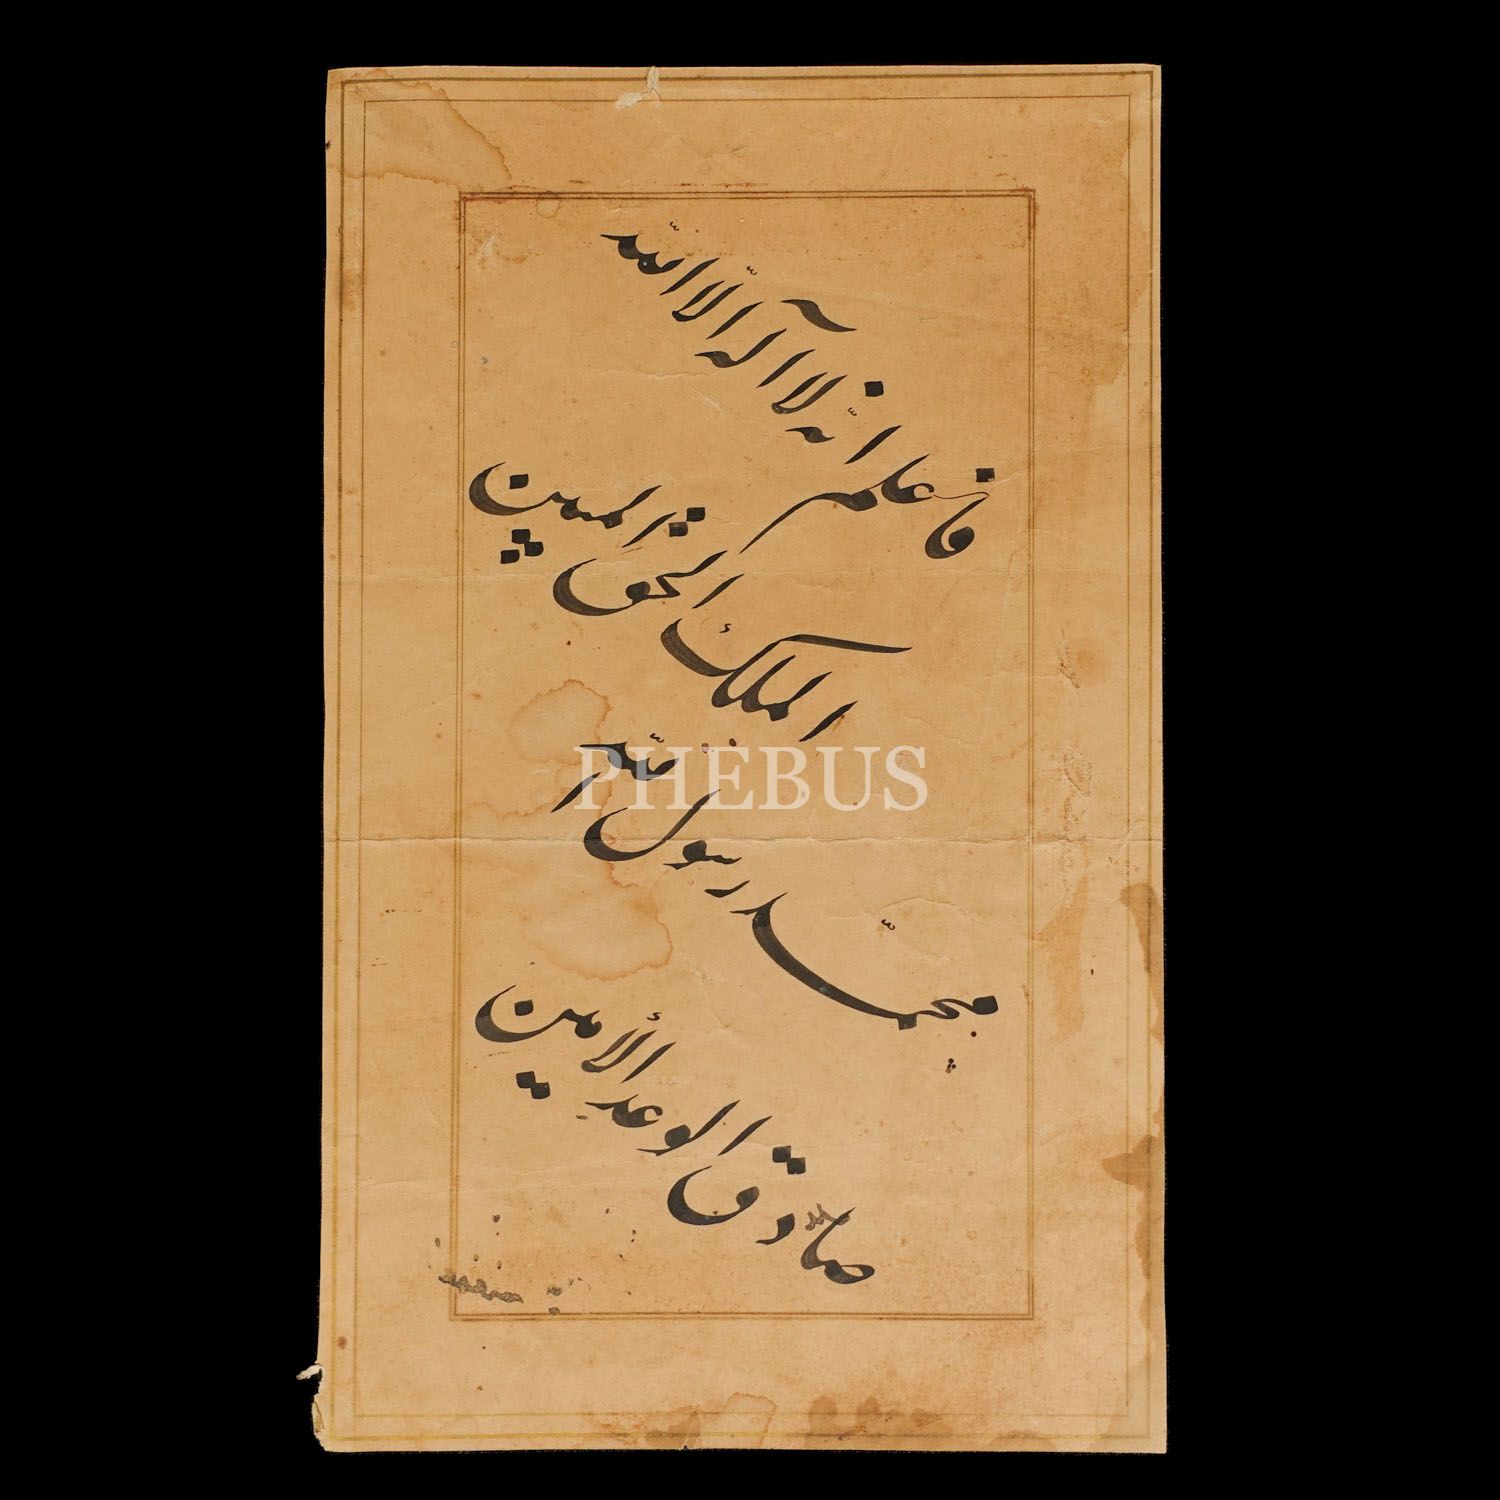 فاعلم انّه لا اله الّا اللّه
الملك الحق المبين
محمّد رسول اللّه
صادق الوعد الأمين
PHEBUS